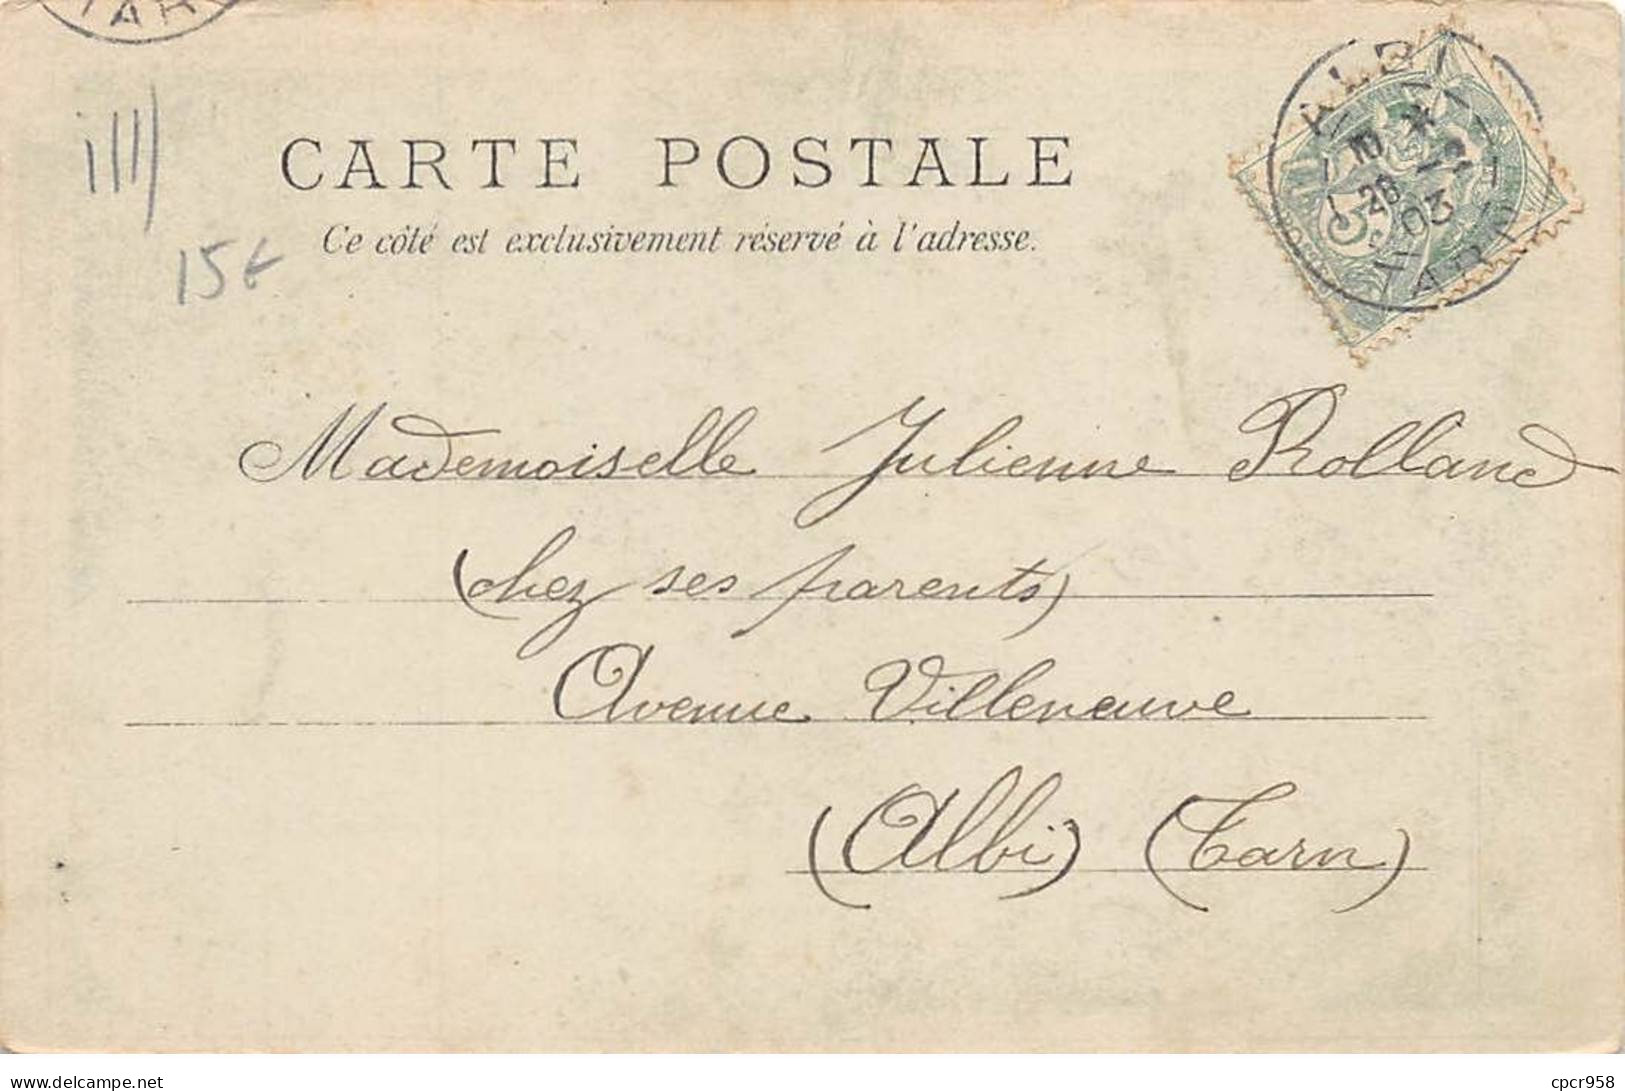 TAR
15€
CARTE POSTALE
Ce côté est exclusivement réservé à l'adresse.
ALBI
10
28
03
TARN
5
Mademoiselle Julienne Rolland
(chez ses parents)
Avenue Villeneuve
(Albi) (Tarn)
www.delcampe.net
cpcr958